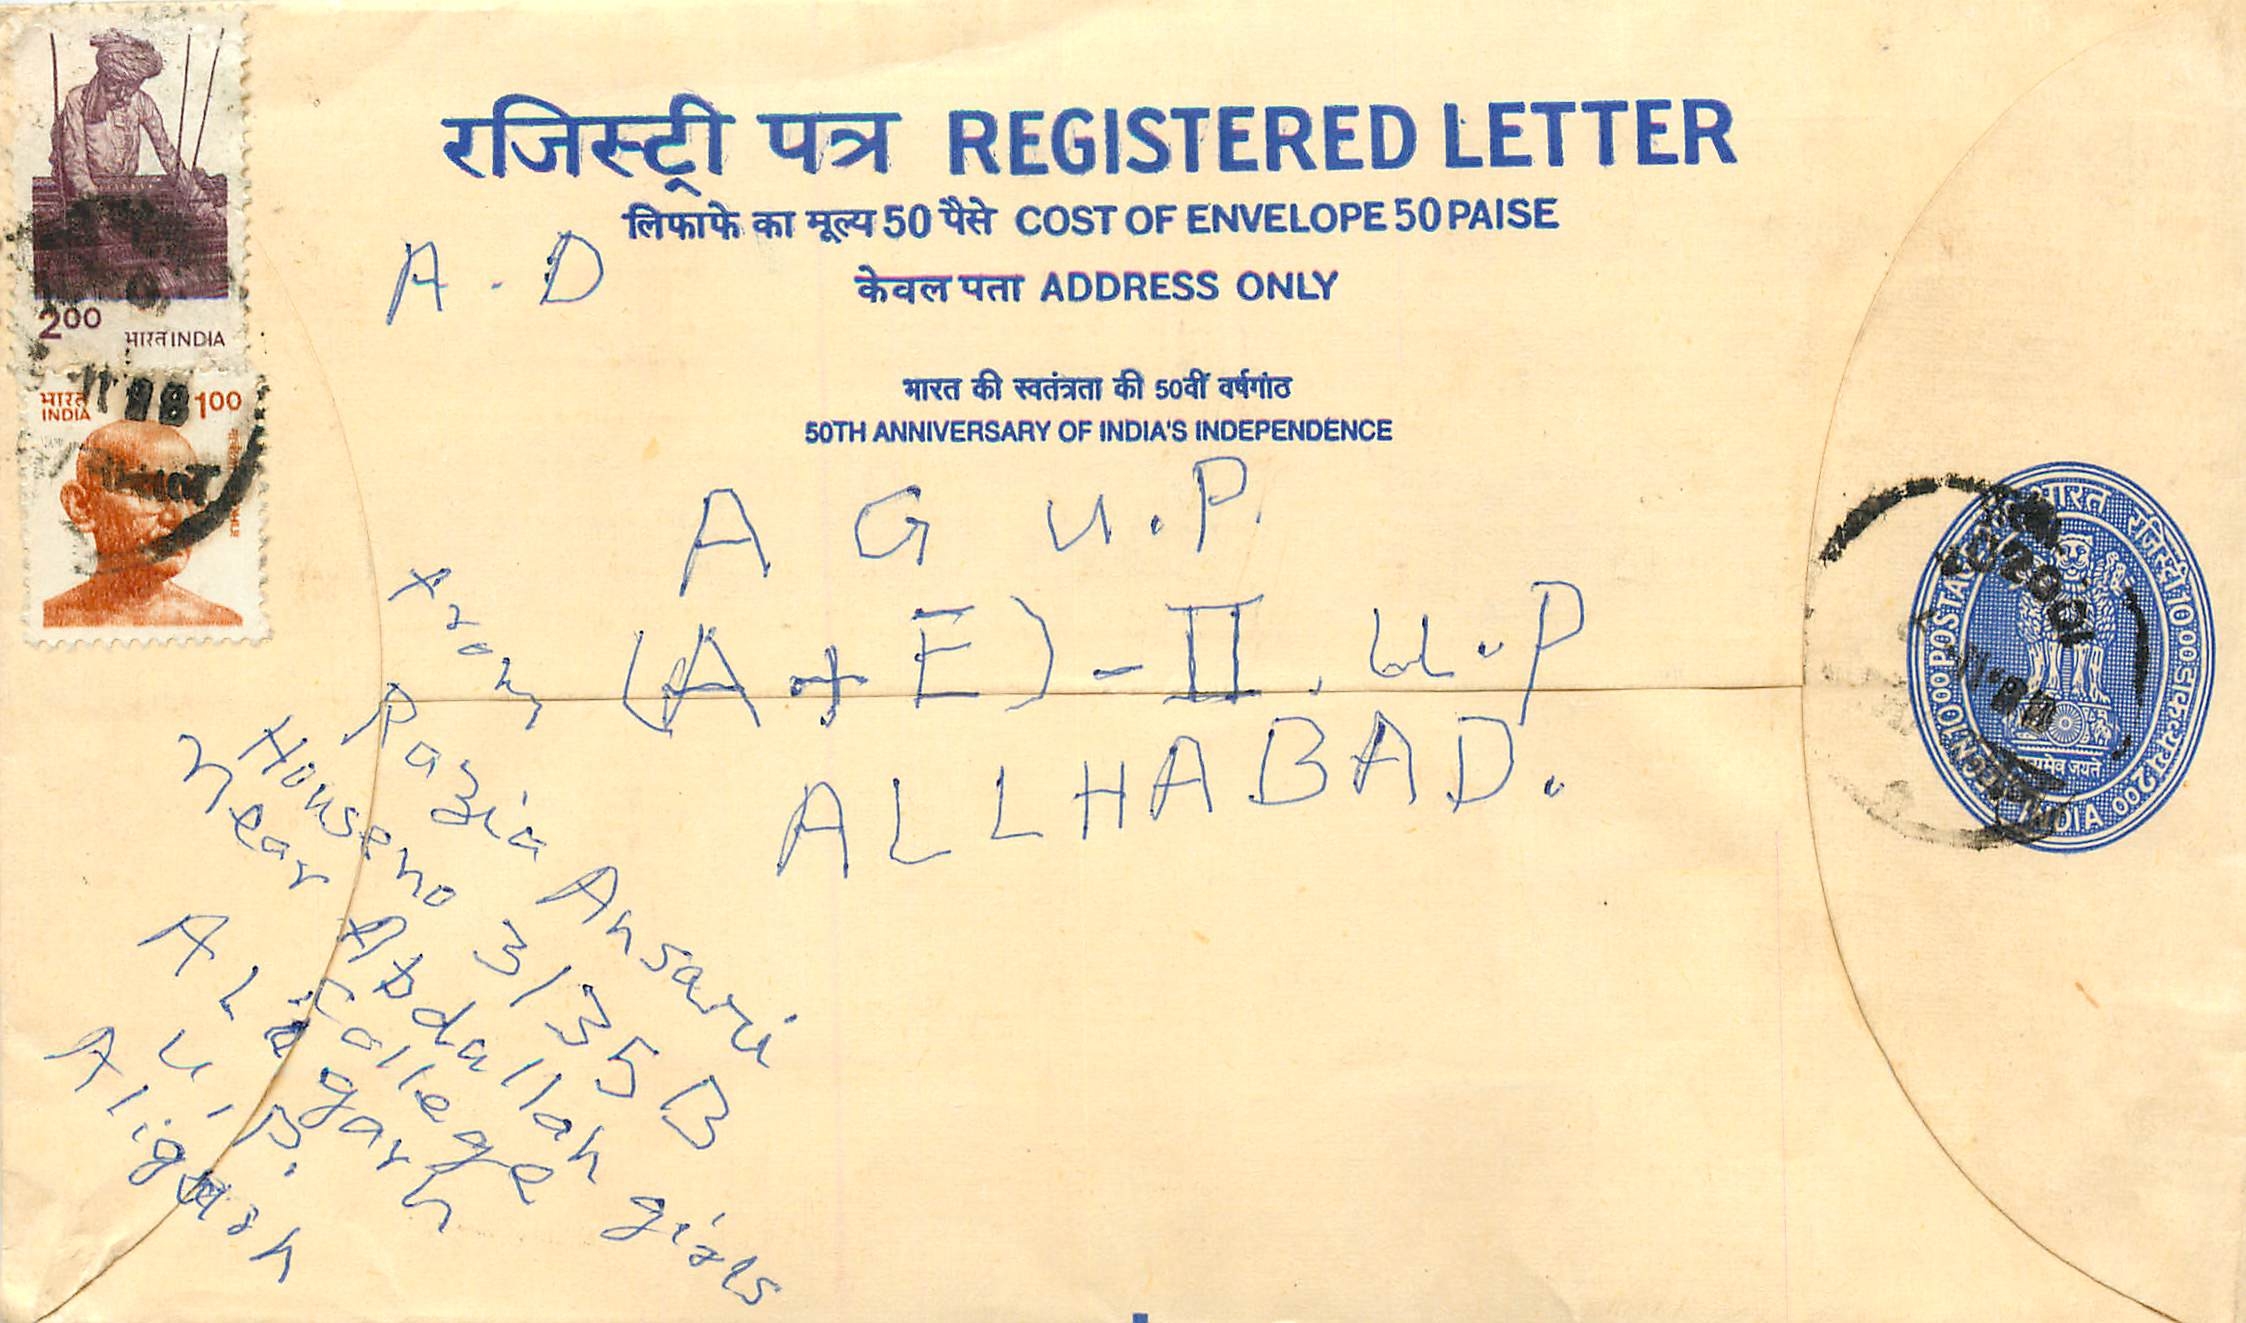 रजिस्ट्री पत्र REGISTERED LETTER
लिफाफे का मूल्य 50 पैसे COST OF ENVELOPE 50 PAISE
A . D
केवल पता ADDRESS ONLY
भारत की स्वतंत्रता की 50वीं वर्षगांठ
50TH ANNIVERSARY OF INDIA'S INDEPENDENCE
200
भारत INDIA
भारत
INDIA
100
A G U.P.
(A+E)-II, U.P
ALLHABAD.
From
Razia Ansari
House no 3/35 B
Near Abdallah girls
College
ALigarh
U.P.
Aligarh
भारत रजिस्ट्री 1000 डाक व्यय 200
INDIA
सत्यमेव जयते